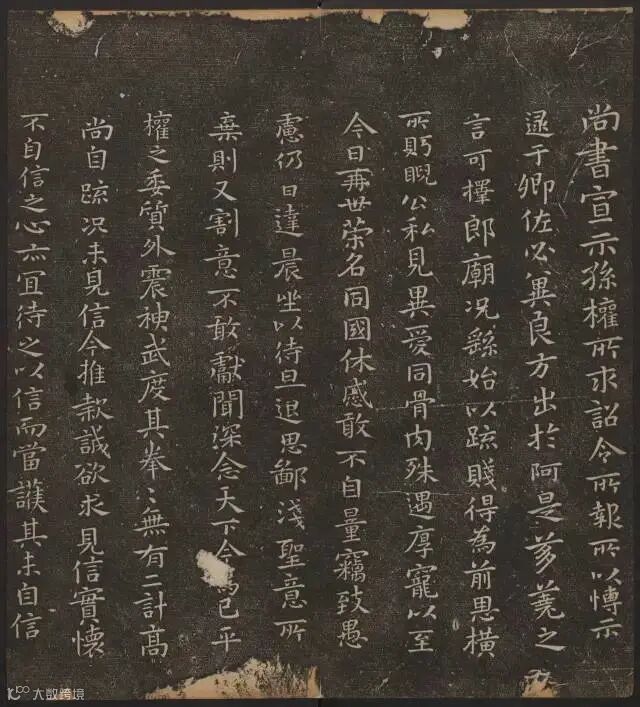 尚書宣示孫權所求詔令所報所以博示
逮于卿佐必冀良方出於阿是芻蕘之
言可擇郎廟況繇始以疏賤得為前恩橫
所眄睨公私見異愛同骨肉殊遇厚寵以至
今日再世榮名同國休慼敢不自量竊致愚
慮仍日達晨坐以待旦退思鄙淺聖意所
棄則又割意不敢獻聞深念天下今為已平
權之委質外震神武度其拳〻無有二計高
尚自疏況未見信今推款誠欲求見信實懷
不自信之心亦宜待之以信而當護其未自信
大数跨境